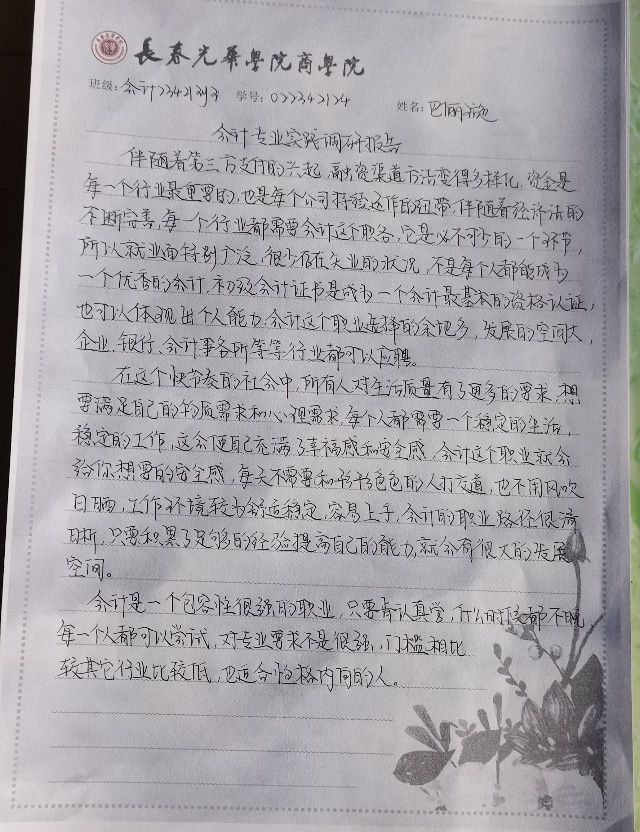 長春光華學院商學院
班级:会计23421班 学号: 022342124 姓名:
会计专业实践调研报告
伴随着第三方支付的兴起,融资渠道方法变得多样化,资金是
每一个行业最重要的,也是每个公司持续运作的纽带,伴随着经济法的
不断完善,每一个行业都需要会计这个职务,它是必不可少的一个环节,
所以就业面特别广泛,很少存在失业的状况,不是每个人都能成为
一个优秀的会计,初级会计证书是成为一个会计最基本的资格认证,
也可以体现出个人能力.会计这个职业选择的余地多,发展的空间大,
企业、银行、会计事务所等等行业都可以应聘。
在这个快节奏的社会中,所有人对生活质量有了更多的要求,想
要满足自己的物质需求和心理需求,每个人都需要一个稳定的生活,
稳定的工作,这会使自己充满了幸福感和安全感,会计这个职业就会
给你想要的安全感,每天不需要和形形色色的人打交道,也不用风吹
日晒,工作环境较为舒适稳定,容易上手,会计的职业路径很清
晰,只要积累了足够的经验提高自己的能力,就会有很大的发展
空间。
会计是一个包容性很强的职业,只要肯认真学,什么时候都不晚
每一个人都可以尝试,对专业要求不是很强,门槛相比
较其它行业比较低,也适合性格内向的人。